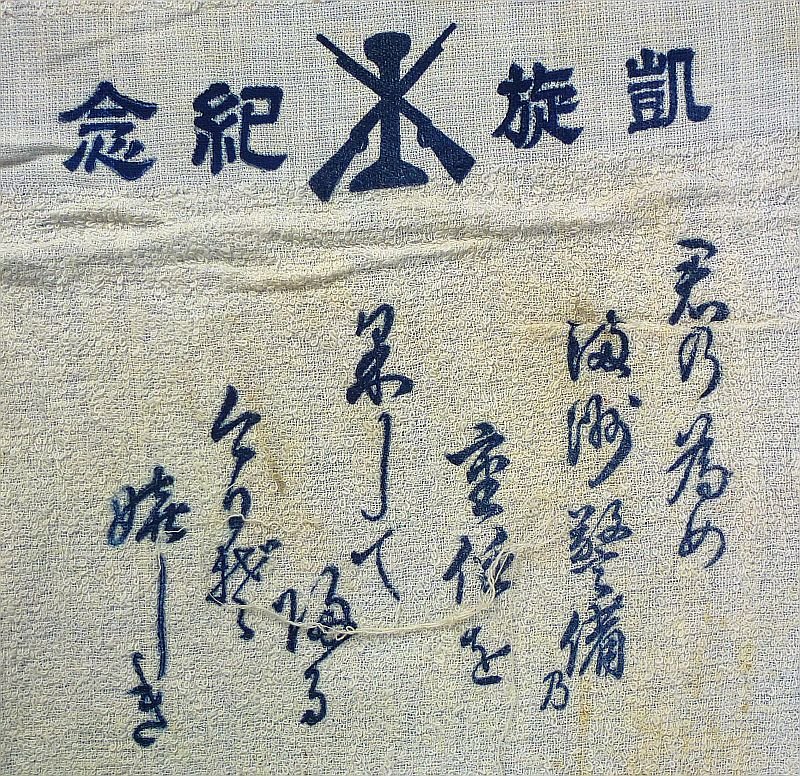 凱旋紀念
君乃為め
満洲警備乃
重任を
果して
帰る
今日ぞ
嬉しき